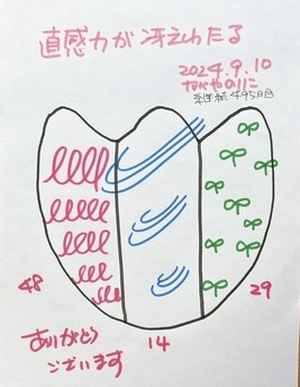 直感力が冴えわたる
2024.9.10
継続495日目
48
29
14
ありがとう
ございます